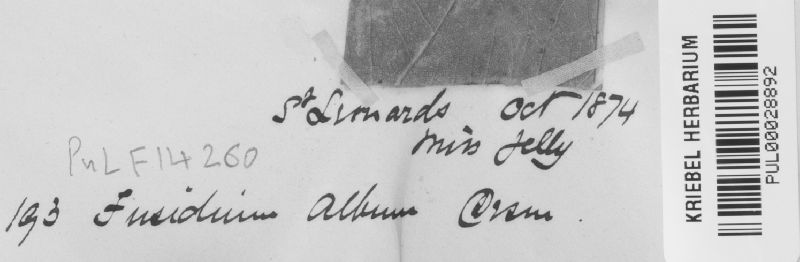 St Leonards Oct 1874
Miss Jelly
PUL F14260
193 Fusidium Album Desm.
KRIEBEL HERBARIUM
PUL00028892